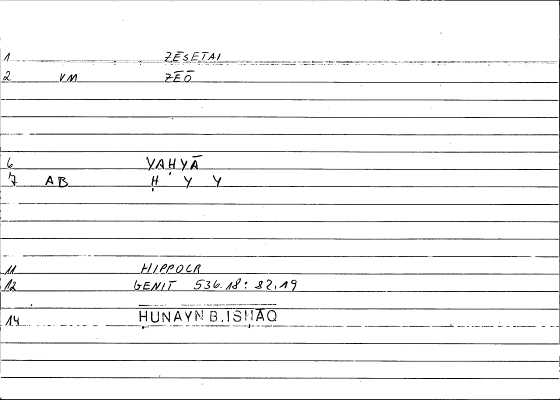 1 ZĒSETAI
2 VM ZEŌ
6 YAḤYĀ
7 AB Ḥ Y Y
11 HIPPOCR
12 GENIT 536.18: 82,19
14 ḤUNAYN B.ISḤĀQ